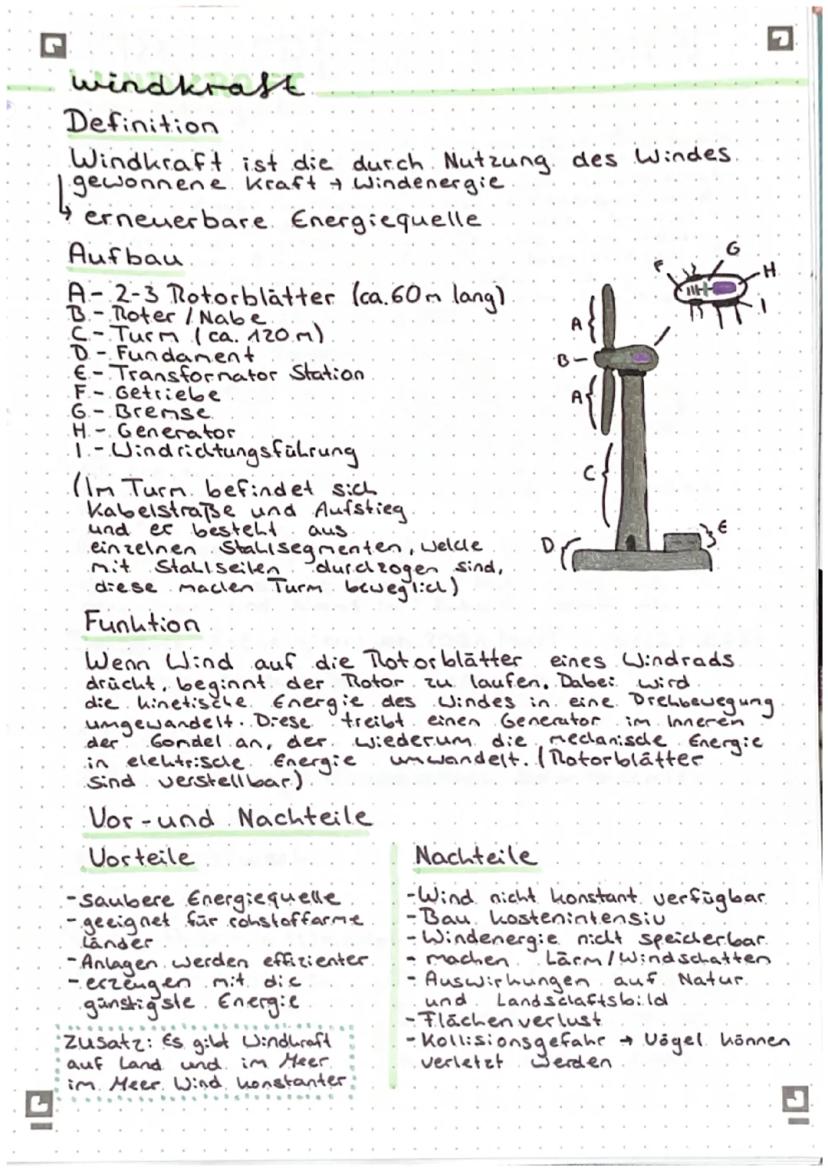 Windkraft
Definition
Windkraft ist die durch Nutzung des Windes
gewonnene Kraft → Windenergie
↳ erneuerbare Energiequelle
Aufbau
A - 2-3 Rotorblätter (ca. 60m lang)
B - Roter / Nabe
C - Turm (ca. 120 m)
D - Fundament
E - Transformator Station
F - Getriebe
G - Bremse
H - Generator
I - Windrichtungsführung
(Im Turm befindet sich
Kabelstraße und Aufstieg
und er besteht aus
einzelnen Stahlsegmenten, welche
mit Stahlseilen durchzogen sind,
diese machen Turm beweglich)
F
G
H
I
A
B
A
C
D
E
Funktion
Wenn Wind auf die Rotorblätter eines Windrads
drückt, beginnt der Rotor zu laufen. Dabei wird
die kinetische Energie des Windes in eine Drehbewegung
umgewandelt. Diese treibt einen Generator im Inneren
der Gondel an, der wiederum die mechanische Energie
in elektrische Energie umwandelt. (Rotorblätter
sind verstellbar)
Vor- und Nachteile
Vorteile
- saubere Energiequelle
- geeignet für rohstoffarme
Länder
- Anlagen werden effizienter
- erzeugen mit die
günstigste Energie
Zusatz: Es gibt Windkraft
auf Land und im Meer
im Meer Wind konstanter
Nachteile
- Wind nicht konstant verfügbar
- Bau kostenintensiv
- Windenergie nicht speicherbar
- machen Lärm / Windschatten
- Auswirkungen auf Natur
und Landschaftsbild
- Flächenverlust
- Kollisionsgefahr → Vögel können
verletzt werden